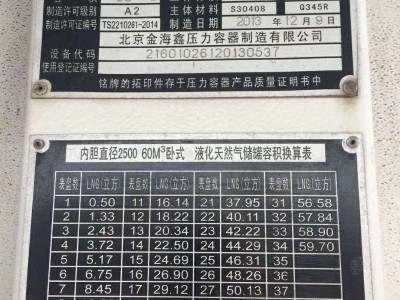 主体材料 S30408 Q345R
制造许可级别 A2
制造许可证编号 TS2210261-2014 制造日期 2013年12月9日
北京金海鑫压力容器制造有限公司
设备代码 21601026120130537
使用登记证编号
铭牌的拓印件存于压力容器产品质量证明书中
内胆直径2500 60M³卧式 液化天然气储罐容积换算表
表盘数 LNG(立方) 表盘数 LNG(立方) 表盘数 LNG(立方) 表盘数 LNG(立方)
1 0.50 11 16.14 21 37.95 31 56.58
2 1.33 12 18.22 22 40.11 32 57.84
3 2.43 13 20.34 23 42.22 33 58.90
4 3.72 14 22.50 24 44.29 34 59.70
5 5.17 15 24.69 25 46.31 35
6 6.75 16 26.90 26 48.26 36
7 8.45 17 29.12 27 50.13 37